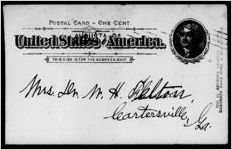 POSTAL CARD – ONE CENT.
United States of America.
THIS SIDE IS FOR THE ADDRESS ONLY.
Mrs. Dr. W. H. Felton,
Cartersville,
Ga.